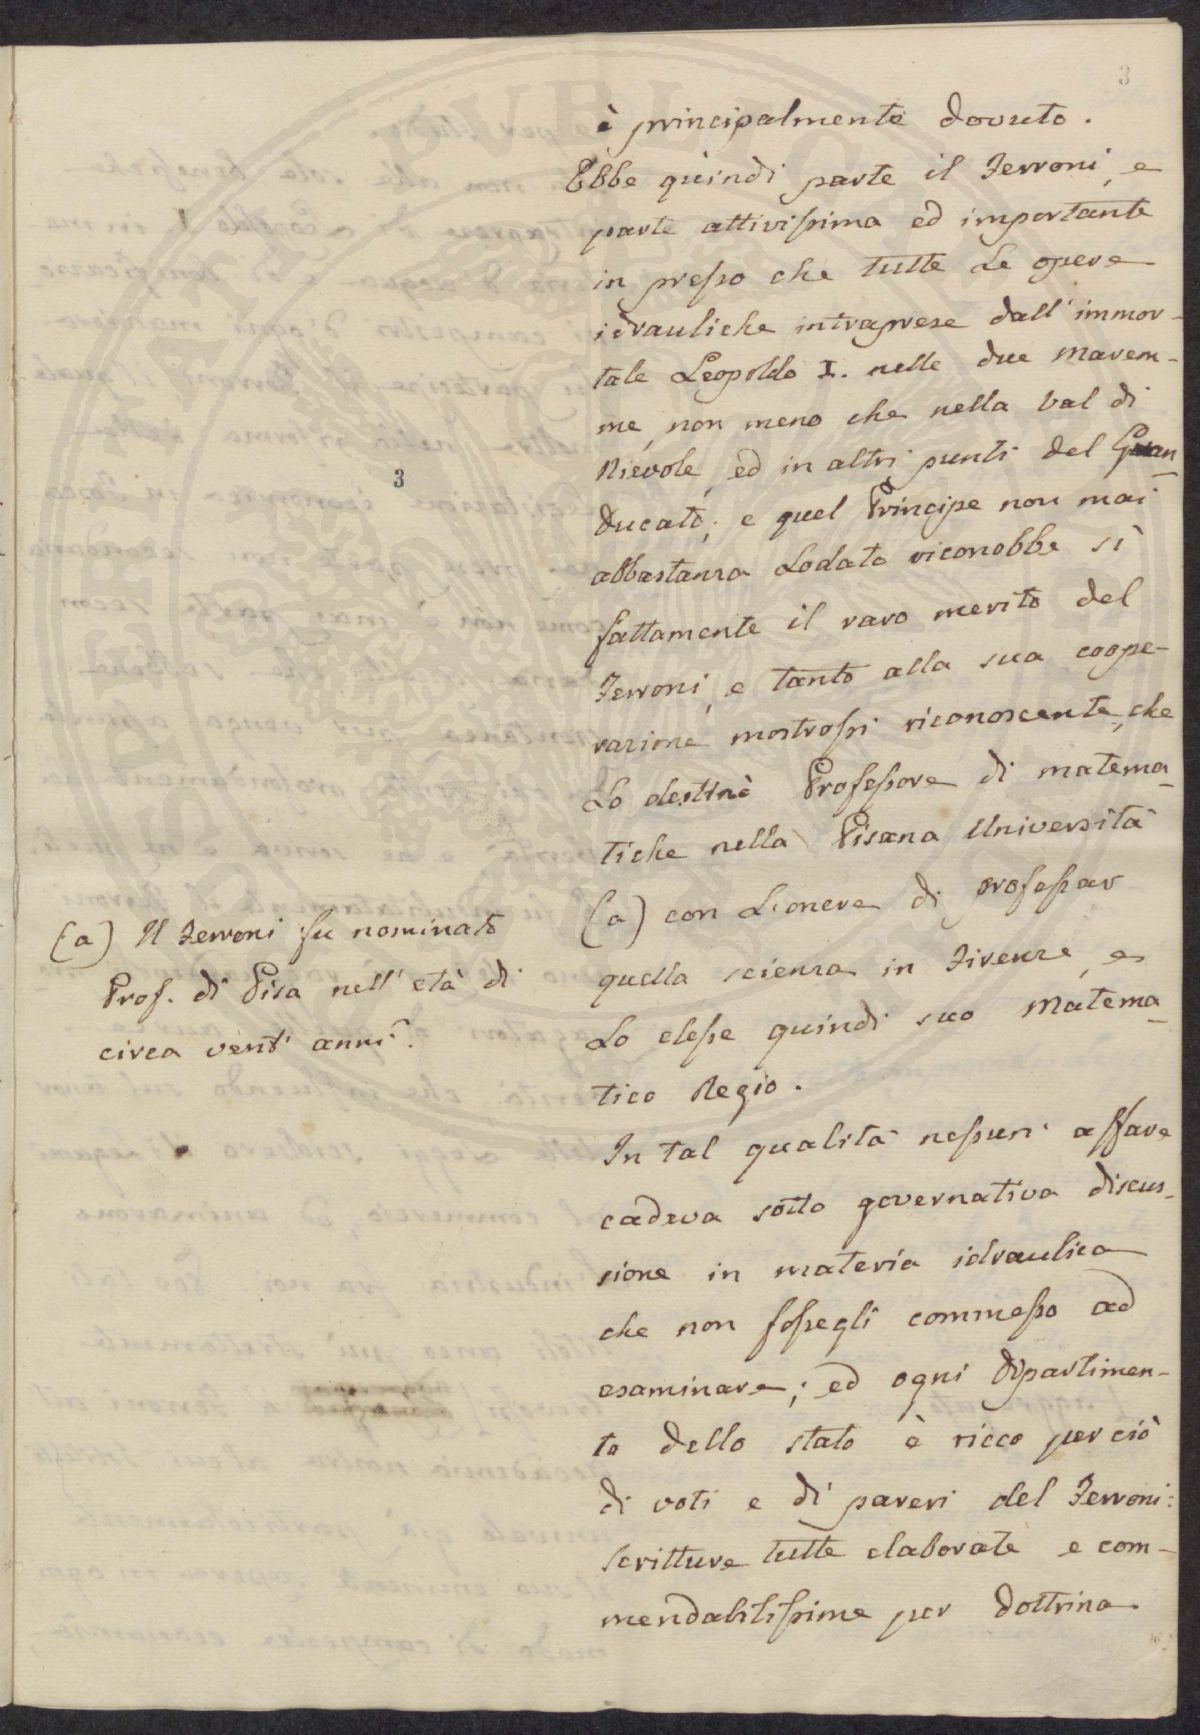 3
è principalmente dovuto.
Ebbe quindi parte il Ferroni, e
parte attivissima ed importante
in presso che tutte Le opere
idrauliche intraprese dall'immor-
tale Leopoldo I. nelle due Marem-
me, non meno che nella Val di
Nievole, ed in altri punti del Gran
Ducato; e quel Principe non mai
abbastanza Lodato riconobbe sì
fattamente il raro merito del
Ferroni, e tanto alla sua coope-
razione mostrossi riconoscente, che
Lo destinò Professore di matema-
tiche nella Pisana Università
(a) con L'onere di professar
quella scienza in Firenze, e
Lo elesse quindi suo Matema-
tico Regio.
In tal qualità nessun' affare
cadeva sotto governativa discus-
sione in materia idraulica
che non fossegli commesso ad
esaminare; ed ogni Dipartimen-
to dello stato è ricco perciò
di voti e di pareri del Ferroni:
scritture tutte elaborate e com-
mendabilissime per dottrina
3
(a) Il Ferroni fu nominato
Prof. di Pisa nell'età di
circa vent'anni.